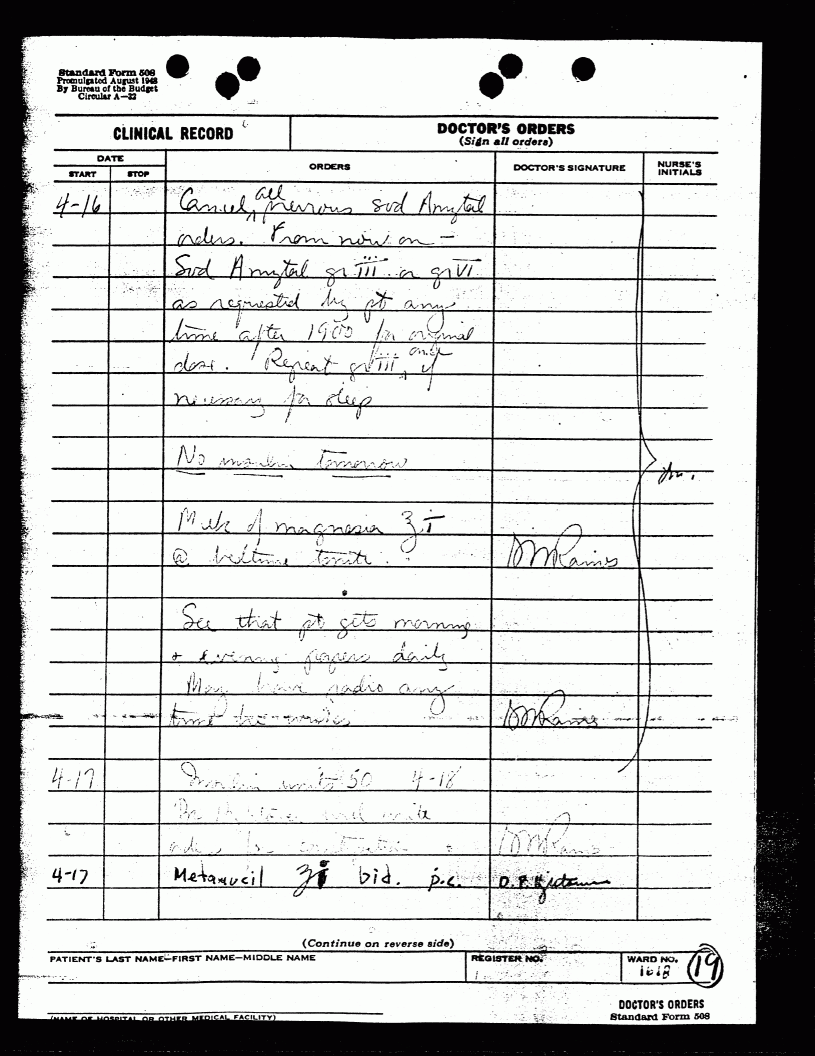 Standard Form 508
Promulgated August 1948
By Bureau of the Budget
Circular A—32
CLINICAL RECORD
DOCTOR'S ORDERS
(Sign all orders)
DATE
START
STOP
ORDERS
DOCTOR'S SIGNATURE
NURSE'S
INITIALS
4-16
Cancel all previous Sod Amytal
orders. From now on —
Sod Amytal gr III or gr VI
as requested by pt any
time after 1900 for original
dose. Repeat gr III once if
necessary for sleep
No insulin tomorrow
Milk of magnesia ℥ i
@ bedtime tonite.
See that pt gets morning
+ evening papers daily
May have radio any
time he
4-17
Insulin units 50 4-18
4-17
Metamucil bid. p.c.
(Continue on reverse side)
PATIENT'S LAST NAME—FIRST NAME—MIDDLE NAME
REGISTER NO.
WARD NO.
1618
19
DOCTOR'S ORDERS
Standard Form 508
(NAME OF HOSPITAL OR OTHER MEDICAL FACILITY)